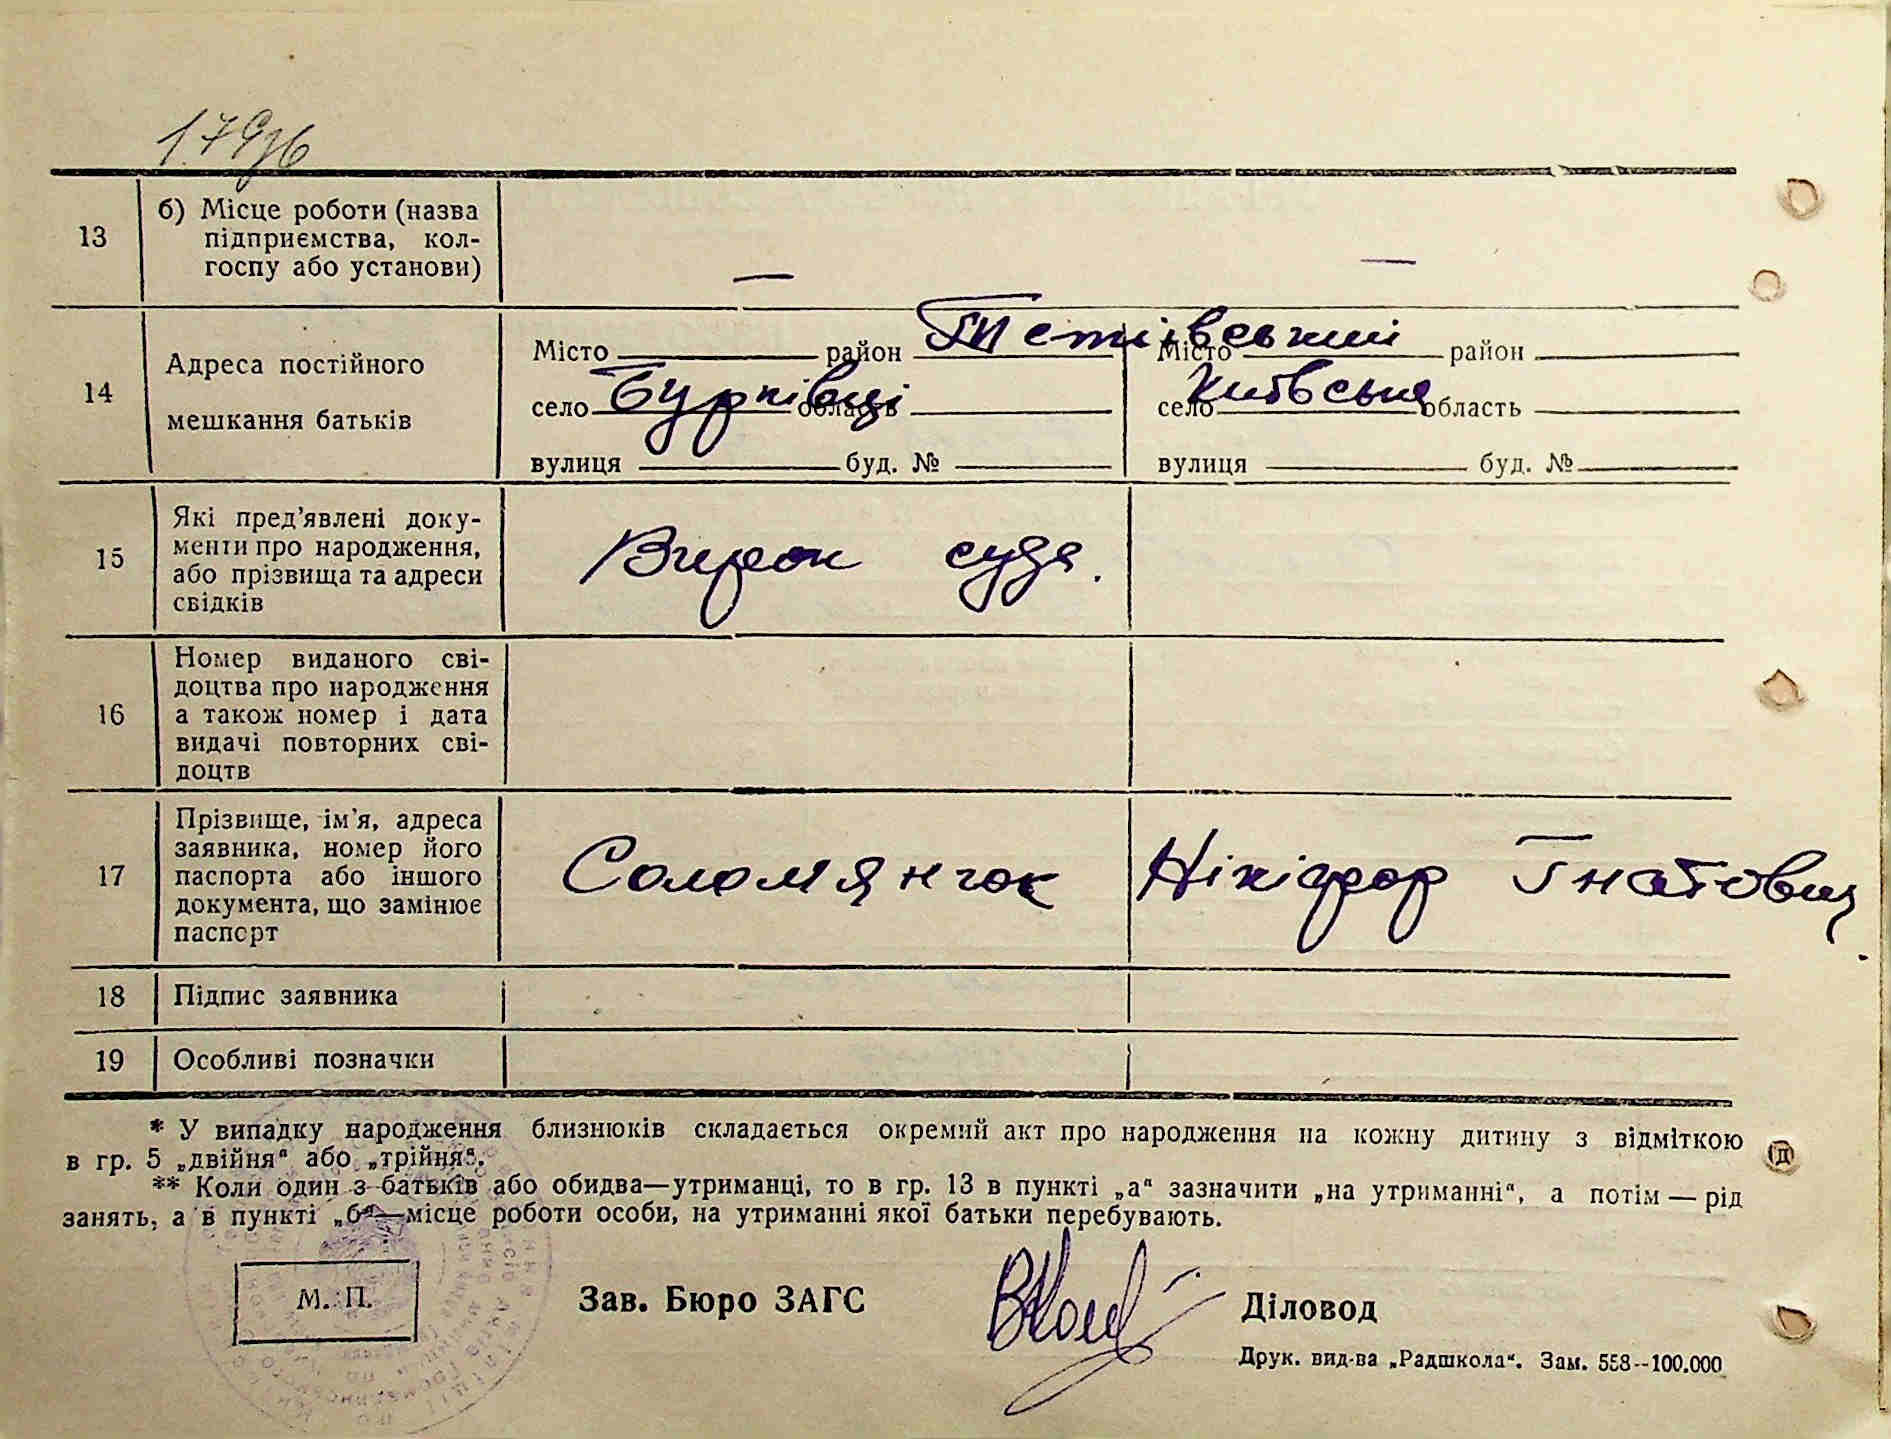 13
б) Місце роботи (назва
підприємства, кол-
госпу або установи)
—
—
14
Адреса постійного
мешкання батьків
Місто район Тетіївський Місто район
село Бурківці область село Київська область
вулиця буд. № вулиця буд. №
15
Які пред’явлені доку-
менти про народження,
або прізвища та адреси
свідків
Вирок суда.
16
Номер виданого сві-
доцтва про народження
а також номер і дата
видачі повторних сві-
доцтв
17
Прізвище, ім’я, адреса
заявника, номер його
паспорта або іншого
документа, що замінює
паспорт
Соломянчок Нікіфор Гнатович
18 Підпис заявника
19 Особливі позначки
* У випадку народження близнюків складається окремий акт про народження на кожну дитину з відміткою
в гр. 5 „двійня“ або „трійня“.
** Коли один з батьків або обидва—утриманці, то в гр. 13 в пункті „а“ зазначити „на утриманні“, а потім — рід
занять, а в пункті „б“—місце роботи особи, на утриманні якої батьки перебувають.
М. П.
Зав. Бюро ЗАГС
Діловод
Друк. вид-ва „Радшкола“. Зам. 558--100.000